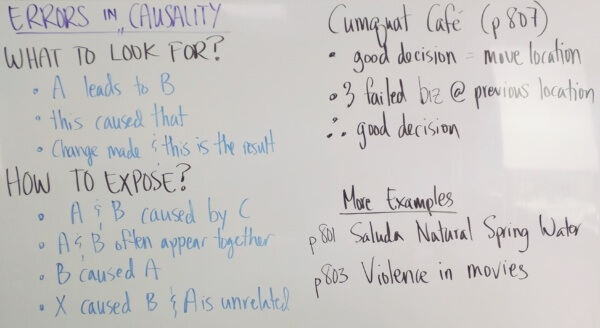 ERRORS IN CAUSALITY
WHAT TO LOOK FOR?
• A leads to B
• this caused that
• Change made & this is the result
HOW TO EXPOSE?
• A & B caused by C
• A & B often appear together
• B caused A
• X caused B & A is unrelated
Cumquat Café (p807)
• good decision = move location
• 3 failed biz @ previous location
∴ good decision
More Examples
p801 Saluda Natural Spring Water
p803 Violence in movies